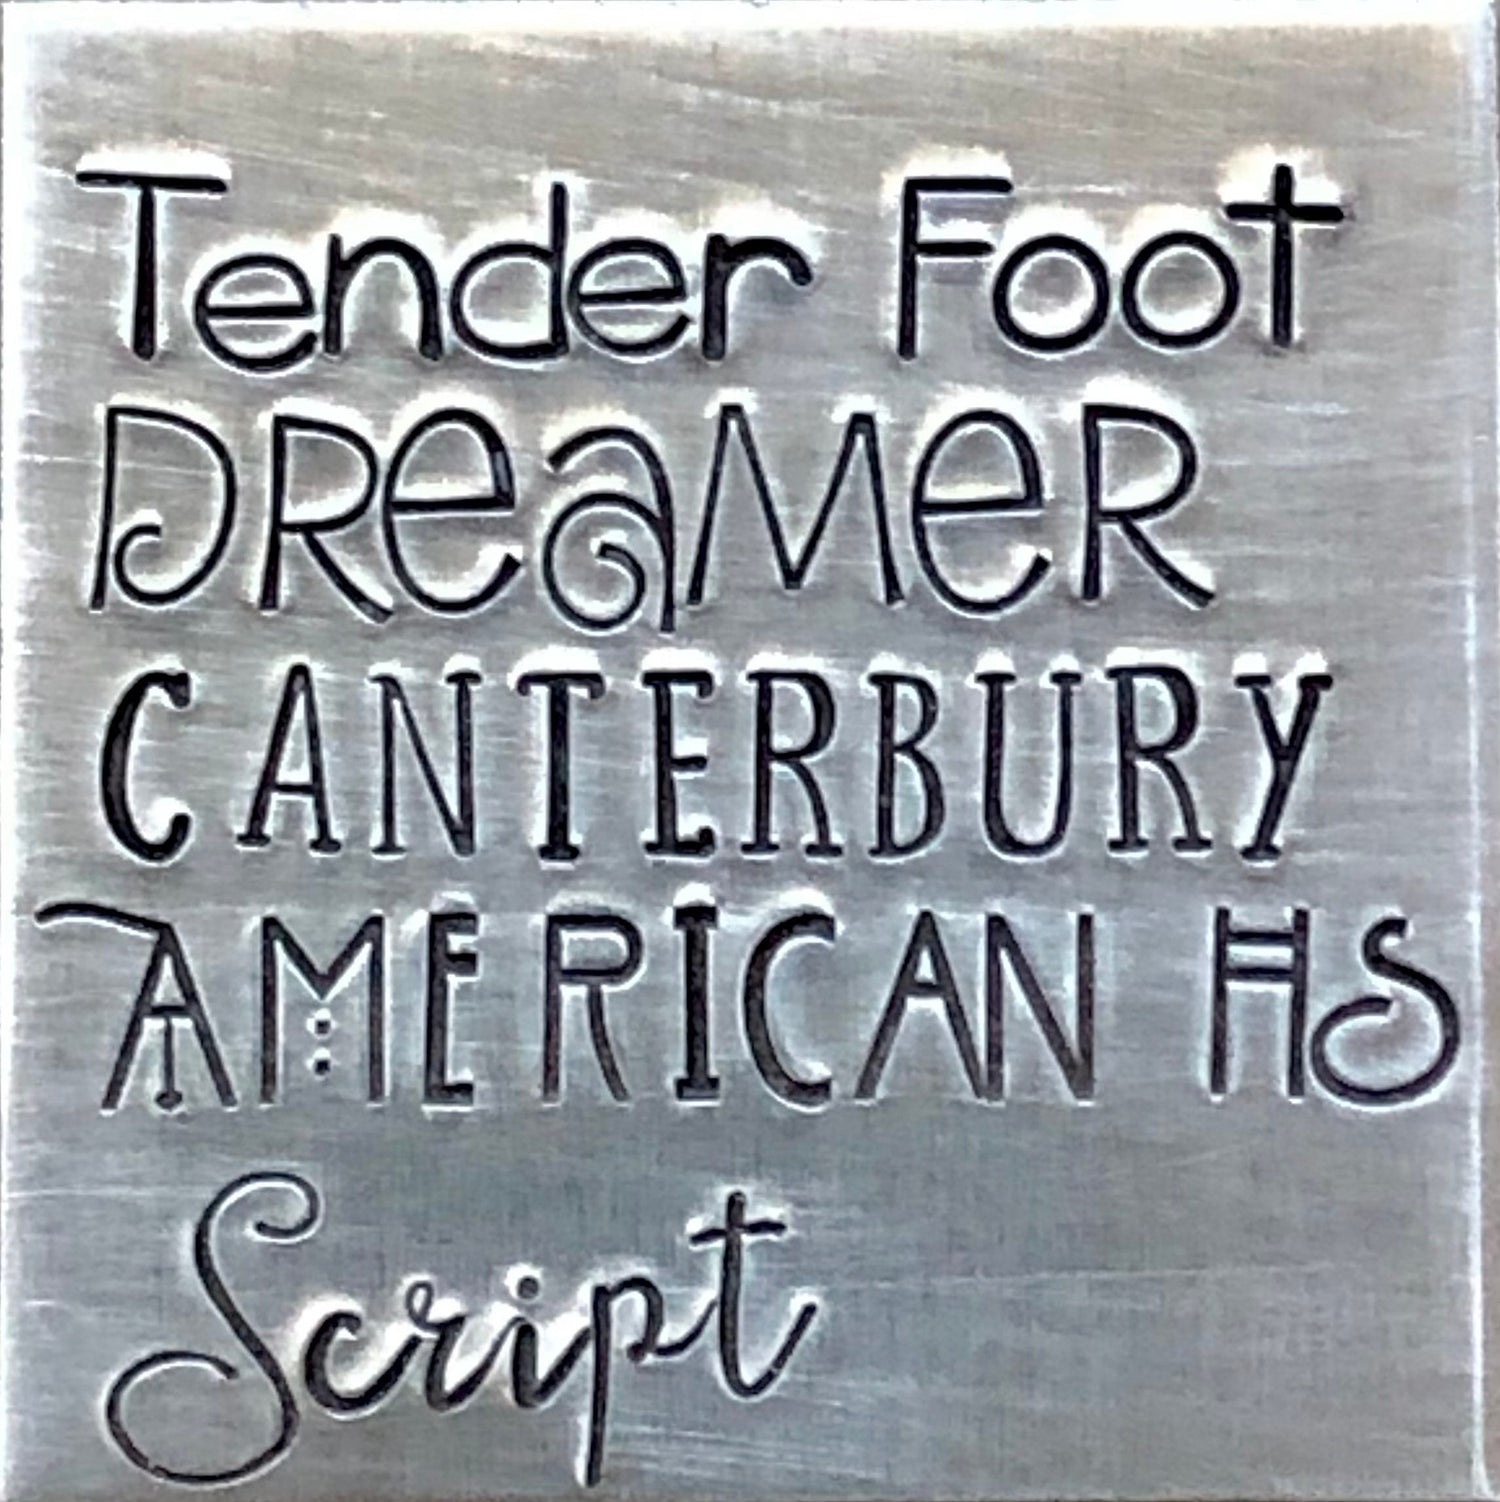 Tender Foot
DReaMeR
CANTERBURY
AMERICAN HS
Script